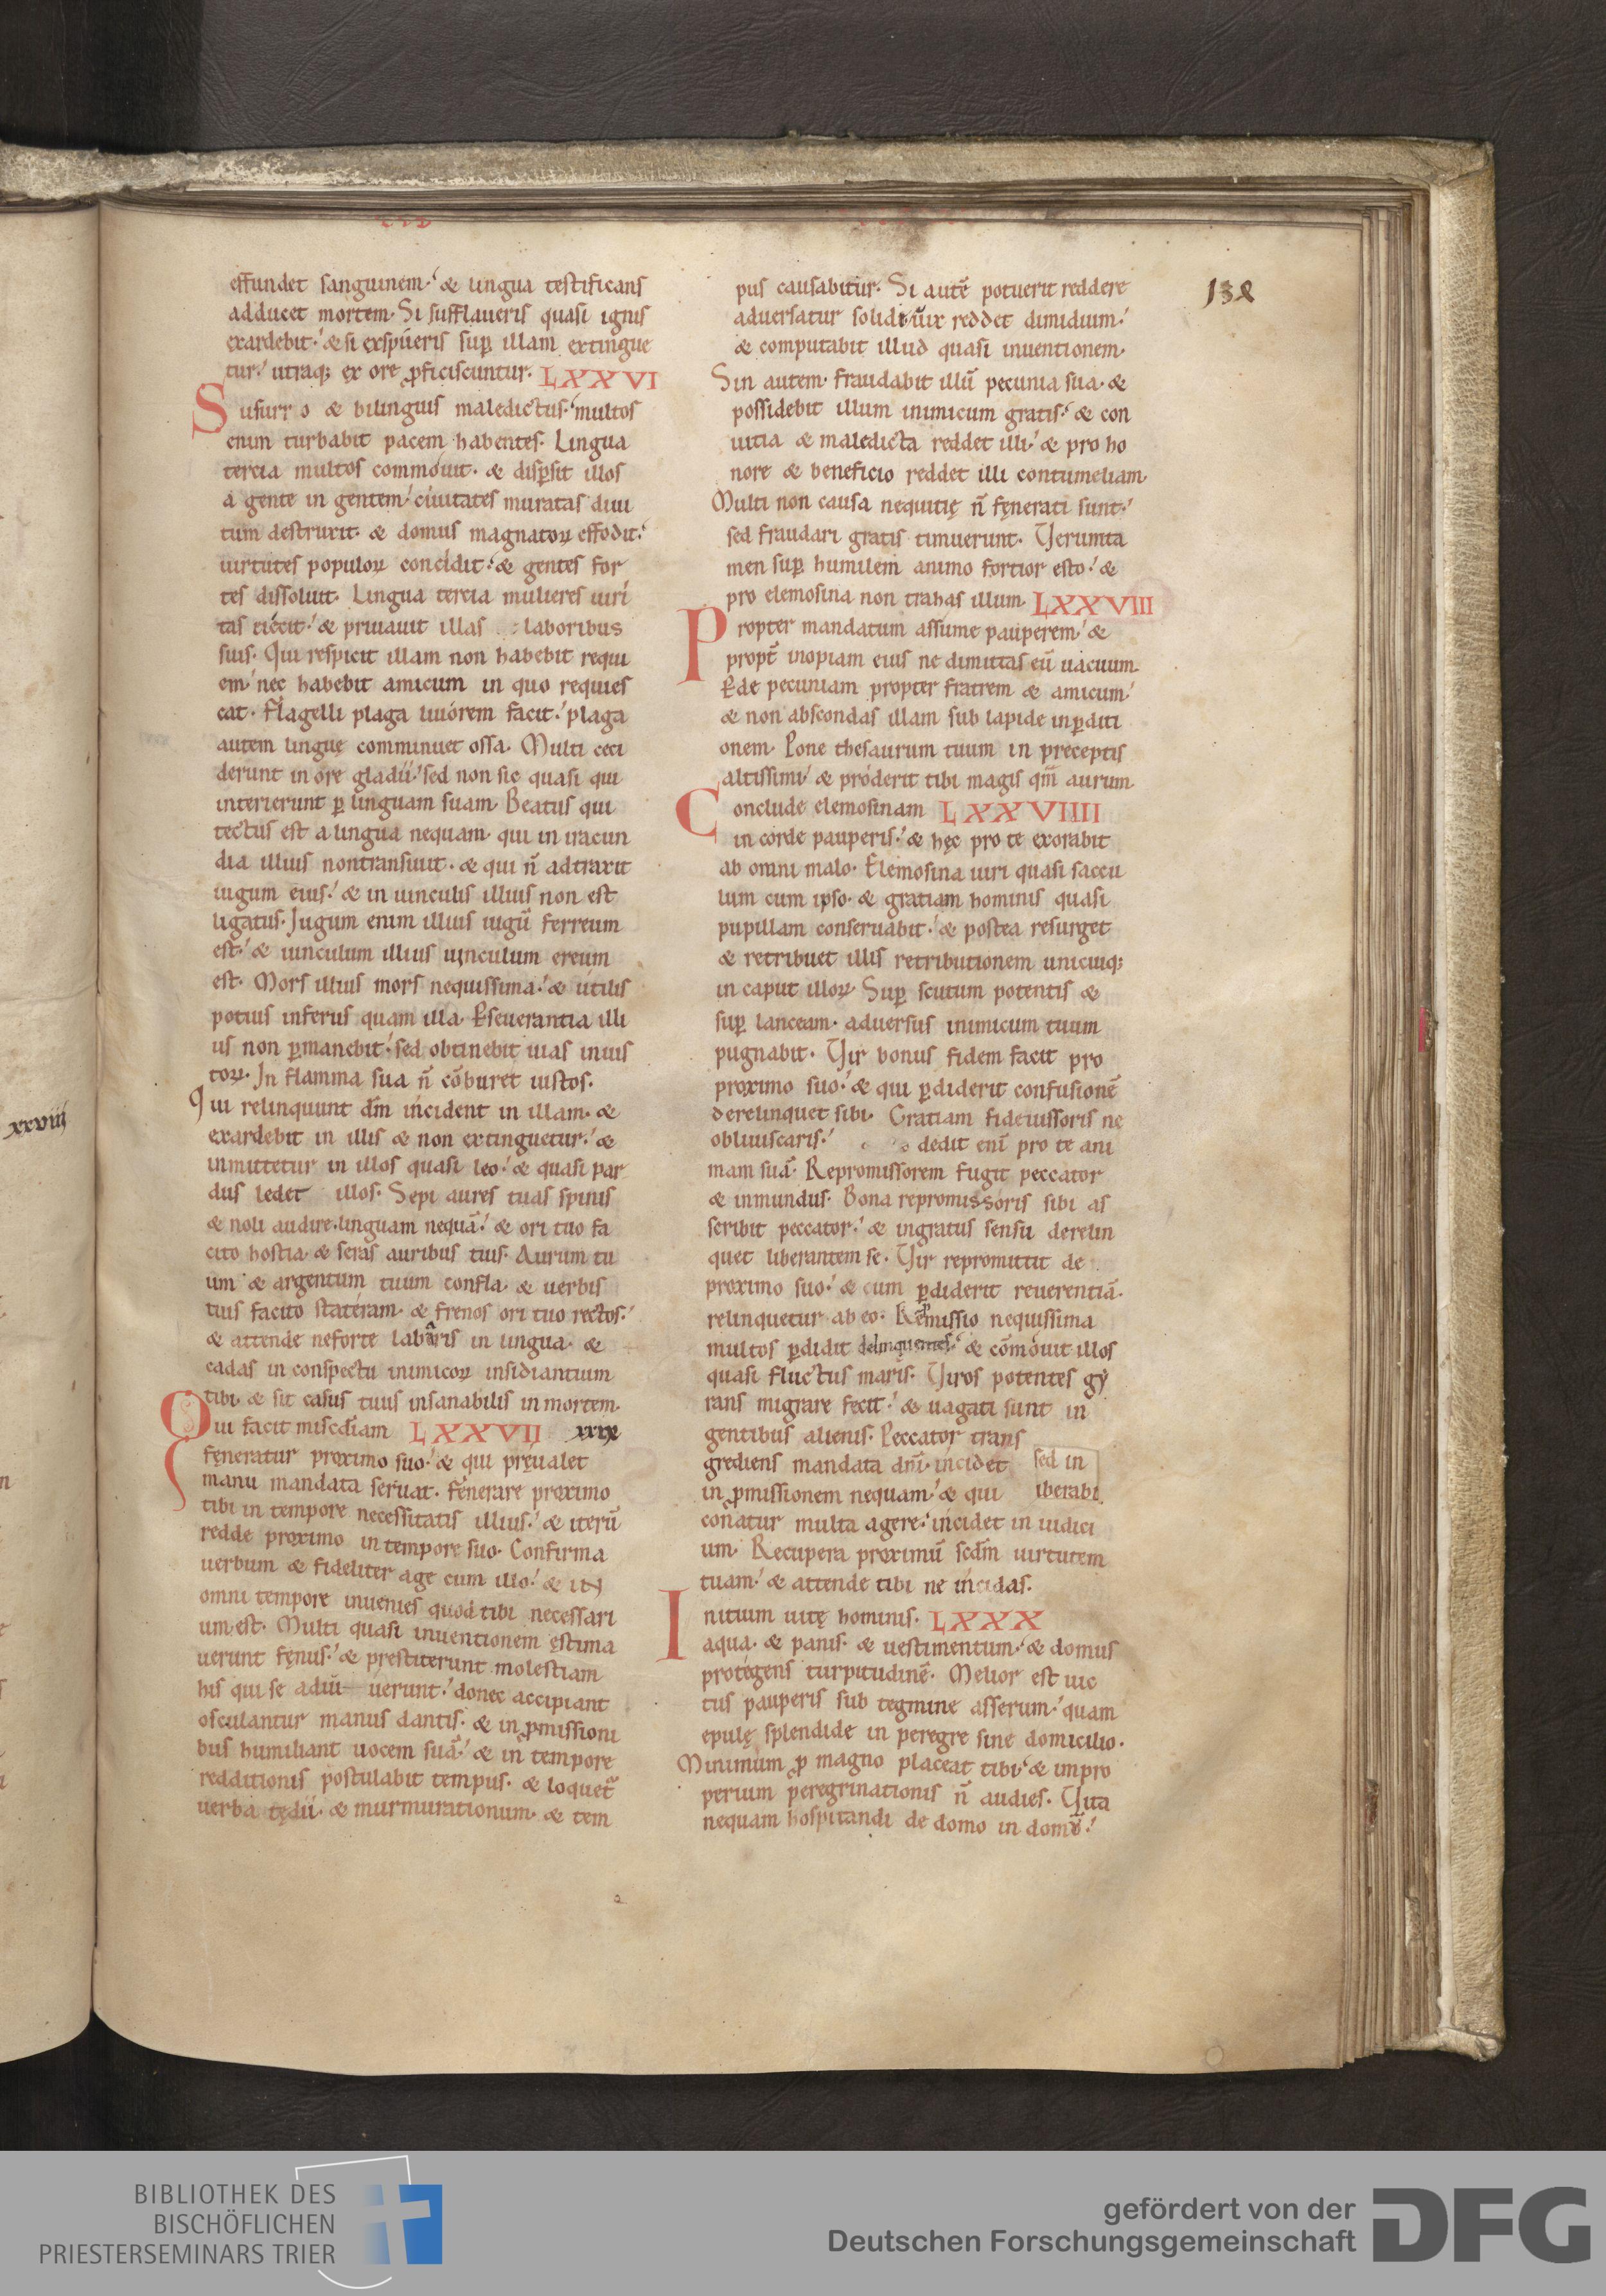 effundet sanguinem. & lingua testificans
adducet mortem. Si sufflaueris quasi ignis
exardebit. & si exspueris sup illam extingue
tur. utraq; ex ore ꝓficiscuntur. LXXVI
Susurro & bilinguis maledictus. multos
enim turbabit pacem habentes. Lingua
tercia multos commouit. & disꝑsit illos
a gente in gentem. ciuitates muratas diui
tum destruxit. & domus magnatoꝝ effodit.
uirtutes populoꝝ concidit. & gentes for
tes dissoluit. Lingua tercia mulieres uiri
tas eiecit. & priuauit illas laboribus
suis. Qui respicit illam non habebit requi
em. nec habebit amicum in quo requies
cat. Flagelli plaga liuorem facit. plaga
autem lingue comminuet ossa. Multi ceci
derunt in ore gladii. sed non sic quasi qui
interierunt ꝑ linguam suam. Beatus qui
tectus est a lingua nequam. qui in iracun
dia illius nontransiuit. & qui n̄ adtraxit
iugum eius. & in uinculis illius non est
ligatus. Jugum enim illius iugū ferreum
est. & uinculum illius uinculum ereum
est. Mors illius mors nequissima. & utilis
potius inferus quam illa. Ꝑseuerantia illi
us non ꝑmanebit. sed obtinebit uias inius
toꝝ. In flamma sua n̄ cōburet iustos.
Qui relinquunt dm̄ incident in illam. &
exardebit in illis & non extinguetur. &
inmittetur in illos quasi leo. & quasi par
dus ledet illos. Sepi aures tuas spinis
& noli audire. linguam nequā. & ori tuo fa
cito hostia. & seras auribus tuis. Aurum tu
um & argentum tuum confla. & uerbis
tuis facito stateram. & frenos ori tuo rectos.
& attende neforte labaris in lingua. &
cadas in conspectu inimicoꝝ insidiantium
tibi. & sit casus tuus insanabilis in mortem.
Qui facit misc̄diam LXXVII xxix
fęneratur proximo suo. & qui pręualet
manu mandata seruat. Fenerare proximo
tibi in tempore necessitatis illius. & iterū
redde proximo in tempore suo. Confirma
uerbum & fideliter age cum illo. & in
omni tempore inuenies quod tibi necessari
um est. Multi quasi inuentionem ęstima
uerunt fęnus. & prestiterunt molestiam
his qui se adiuuerunt. donec accipiant
osculantur manus dantis. & in ꝓmissioni
bus humiliant uocem suā. & in tempore
redditionis postulabit tempus. & loquet᷑
uerba tędii. & murmurationum. & tem
138
pus causabitur. Si autē potuerit reddere
aduersatur solidi uix reddet dimidium.
& computabit illud quasi inuentionem.
Sin autem. fraudabit illū pecunia sua. &
possidebit illum inimicum gratis. & con
uitia & maledicta reddet illi. & pro ho
nore & beneficio reddet illi contumeliam.
Multi non causa nequitię n̄ fęnerati sunt.
sed fraudari gratis timuerunt. Verumta
men sup humilem animo fortior esto. &
pro elemosina non trahas illum. LXXVIII
Propter mandatum assume pauperem. &
propt̄ inopiam eius ne dimittas eū uacuum.
Ꝑde pecuniam propter fratrem & amicum.
& non abscondas illam sub lapide inꝑditi
onem. Pone thesaurum tuum in preceptis
altissimi. & proderit tibi magis qm̄ aurum.
Conclude elemosinam LXXVIIII
in corde pauperis. & hęc pro te exorabit
ab omni malo. Elemosina uiri quasi saccu
lum cum ipso. & gratiam hominis quasi
pupillam conseruabit. & postea resurget
& retribuet illis retributionem unicuiq;
in caput illoꝝ. Sup scutum potentis &
sup lanceam. aduersus inimicum tuum
pugnabit. Vir bonus fidem facit pro
proximo suo. & qui ꝑdiderit confusionē
derelinquet sibi. Gratiam fideiussoris ne
obliuiscaris. dedit eni᷑ pro te ani
mam suā. Repromissorem fugit peccator
& inmundus. Bona repromissoris sibi as
scribit peccator. & ingratus sensu derelin
quet liberantem se. Vir repromittit de
proximo suo. & cum ꝑdiderit reuerentiā.
relinquetur ab eo. Repmissio nequissima
multos ꝑdidit delinquentes. & cōmouit illos
quasi fluctus maris. Viros potentes gy
rans migrare fecit. & uagati sunt in
gentibus alienis. Peccator trans
grediens mandata dn̄i. incidet sed in
in ꝓmissionem nequam. & qui iberabi
conatur multa agere. incidet in iudici
um. Recupera proximū sc̄dm uirtutem
tuam. & attende tibi ne incidas.
Initium uitę hominis. LXXX
aqua. & panis. & uestimentum. & domus
protegens turpitudinē. Melior est uic
tus pauperis sub tegmine asserum. quam
epulę splendide in peregre sine domicilio.
Minimum ꝓ magno placeat tibi. & impro
perium peregrinationis n̄ audies. Vita
nequam hospitandi de domo in domū.
xxviii
BIBLIOTHEK DES
BISCHÖFLICHEN
PRIESTERSEMINARS TRIER
gefördert von der
Deutschen Forschungsgemeinschaft
DFG